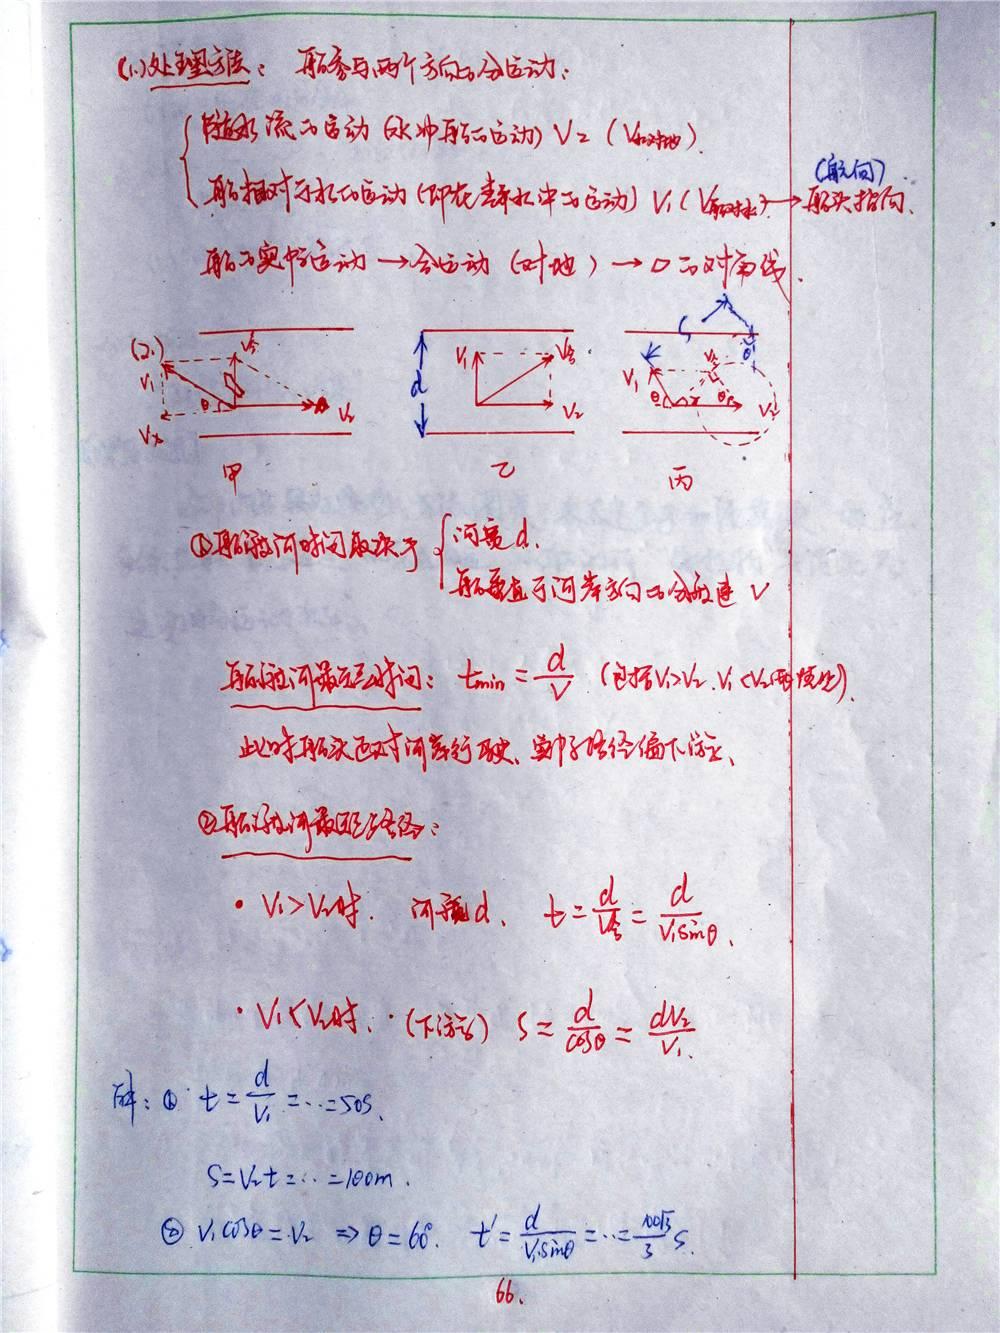 (1.) 处理方法： 船参与两个方向的分运动：
随水流的运动 (水冲船的运动) V₂ ( V水对地 ).
船相对于水的运动 (即在静水中的运动) V₁ ( V船对水 ). → 船头指向.
(航向)
船的实际运动 → 合运动 (对地) → □的对角线.
(2.) V₁ V合 θ V₂ Vx
d V₁ V合 V₂
S V₁ V合 θ θ θ V₂
甲 乙 丙
①船渡河时间取决于 河宽d.
船垂直于河岸方向的分速度 V
船渡河最短时间： tmin = d/V (包括V₁>V₂. V₁<V₂两情况).
此时船头正对河岸行驶、 路径偏下游、
②船渡河最短路径：
· V₁>V₂时. 河宽d. t = d/V合 = d/V₁sinθ.
· V₁<V₂时. (下游) S = d/cosθ = dV₂/V₁.
解：① t = d/V₁ = … = 50s.
S = V₂t = … = 100m.
② V₁cosθ = V₂ ⇒ θ = 60°. t' = d/V₁sinθ = … = 100√3/3 s.
66.